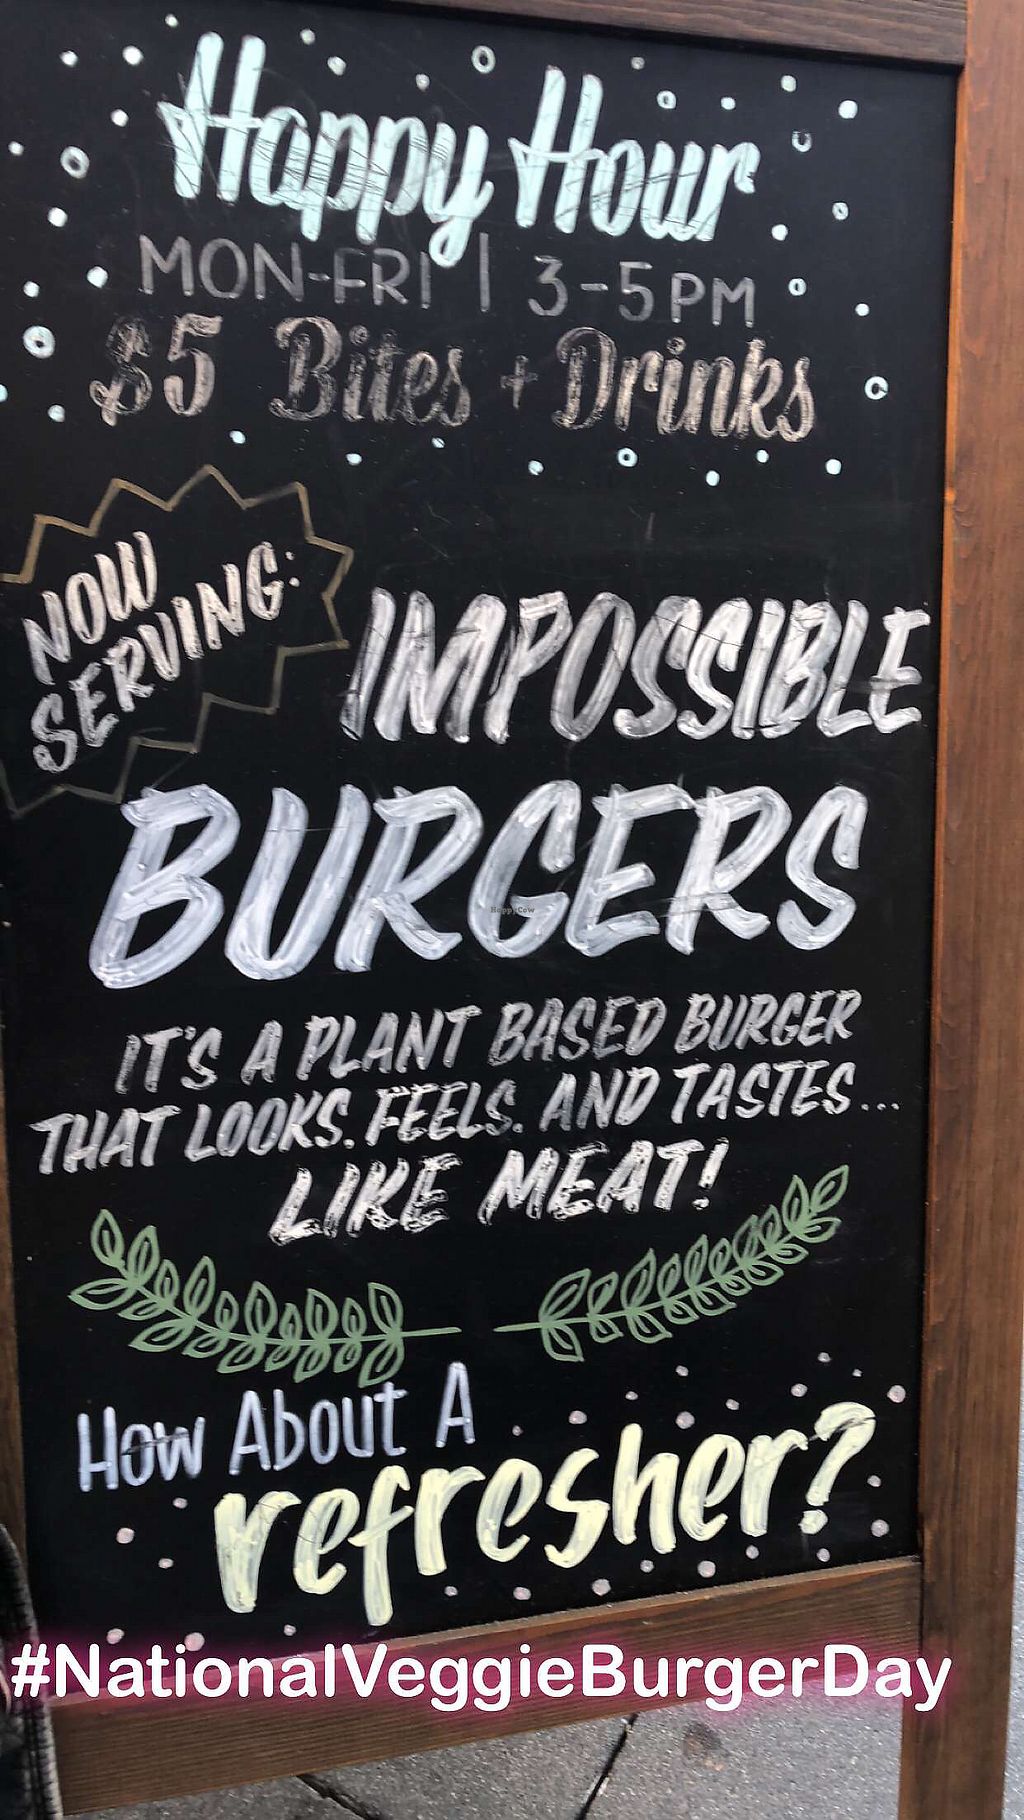 Happy Hour
MON-FRI | 3-5PM
$5 Bites + Drinks
NOW
SERVING:
IMPOSSIBLE
BURGERS
HappyCow
IT'S A PLANT BASED BURGER
THAT LOOKS. FEELS. AND TASTES...
LIKE MEAT!
How About A
refresher?
#NationalVeggieBurgerDay